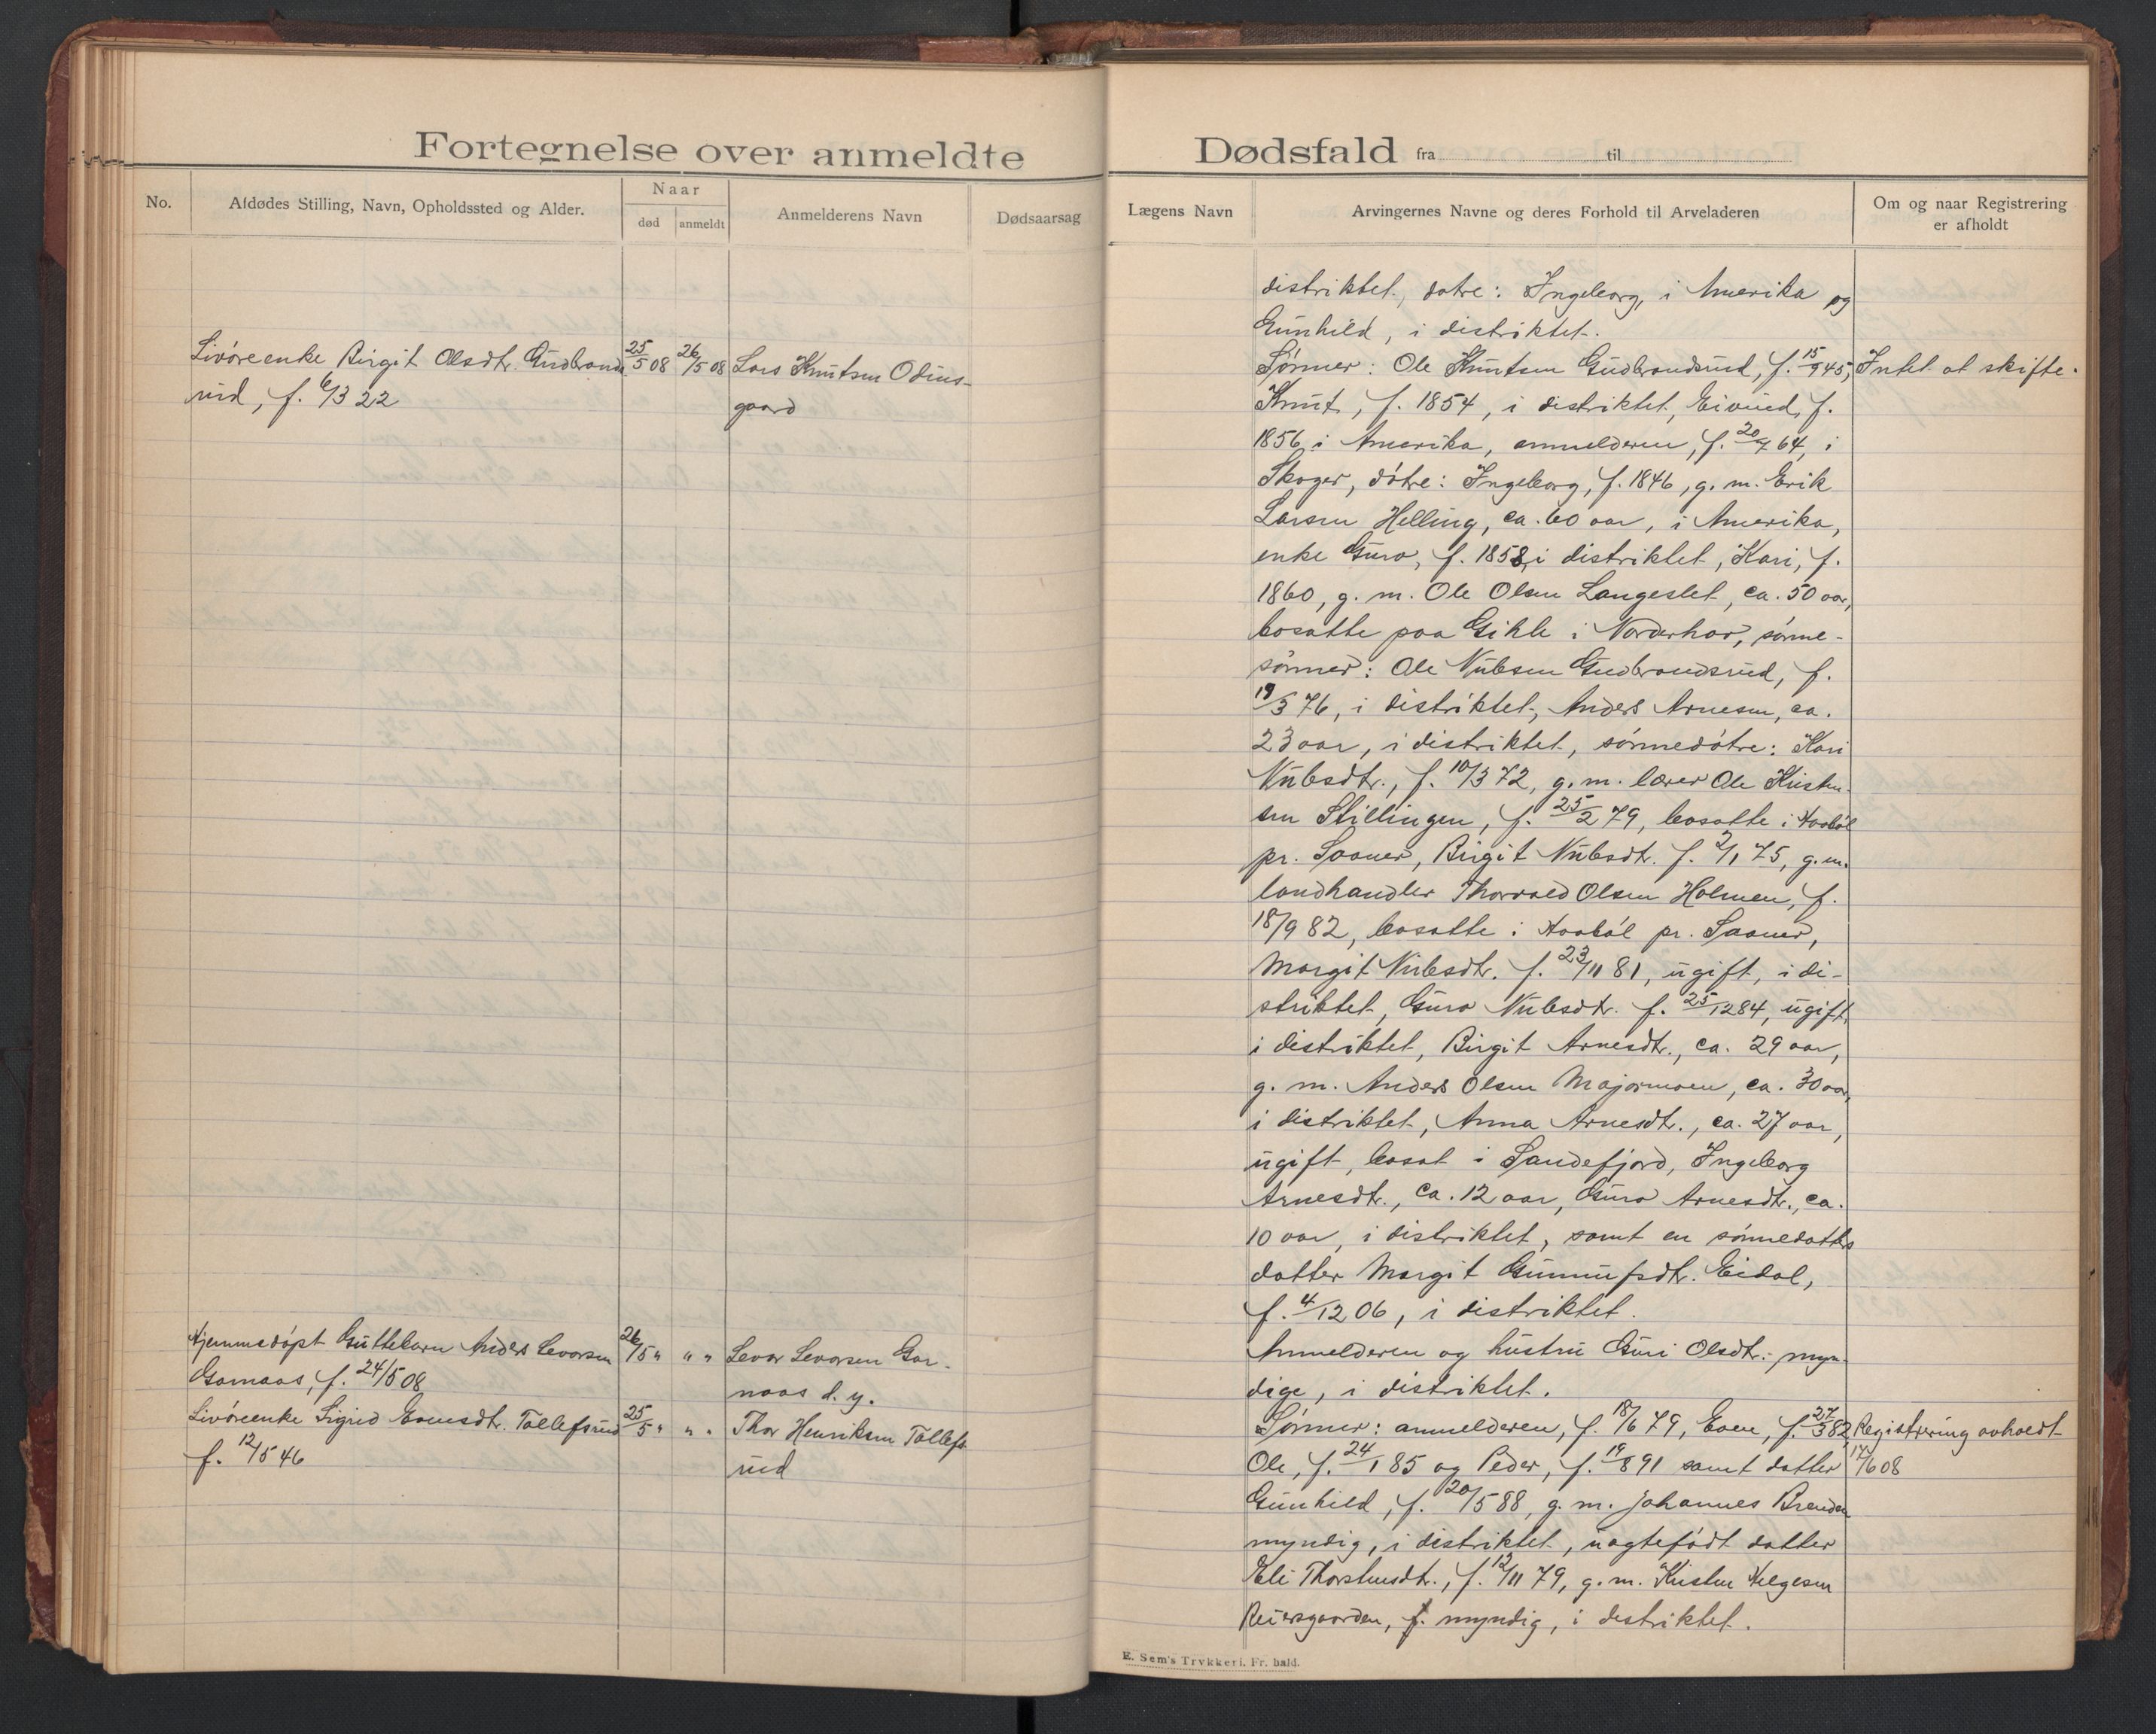 Fortegnelse over anmeldte
No.
Afdødes Stilling, Navn, Opholdssted og Alder.
Naar
død
anmeldt
Anmelderens Navn
Dødsaarsag
Livøreenke Birgit Olsdt. Gudbrands 25/5 08 26/5 08 Lars Knutsen Odins-
rud, f. 6/3 22
gaard
Hjemmedøpt Guttebarn Anders Levorsen 26/5 " " " Levor Levorsen Gar-
Garnaas, f. 24/5 08
naas d. y.
Livøreenke Sigrid Evensdt. Tollefsrud 25/5 " " " Thor Henriksen Tollefs
f. 12/5 46
rud
Dødsfald fra til
Lægens Navn
Arvingernes Navne og deres Forhold til Arveladeren
Om og naar Registrering
er afholdt
distriktet, døtre: Ingeborg, i Amerika og
Gunhild, i distriktet.
Sønner: Ole Knutsen Gudbrandsrud, f. 15/9 45, Intet at skifte.
Knut, f. 1854, i distriktet, Eivind, f.
1856, i Amerika, anmelderen, f. 20/7 64, i
Skoger, døtre: Ingeborg, f. 1846, g. m. Erik
Larsen Helling, ca. 60 aar, i Amerika,
enke Guro, f. 1858, i distriktet, Kari, f.
1860, g. m. Ole Olsen Langeslet, ca. 50 aar,
bosatte paa Gihle i Norderhov, sønne-
sønner: Ole Nubsen Gudbrandsrud, f.
19/3 76, i distriktet, Anders Arnesen, ca.
23 aar, i distriktet, sønnedøtre: Kari
Nubsdt., f. 10/3 72, g. m. lærer Ole Kristen-
sen Stillingen, f. 25/2 79, bosatte i Haabøl
pr. Sooner, Birgit Nubsdt. f. 2/1 75, g. m.
landhandler Thorvald Olsen Holmen, f.
18/9 82, bosatte i Haabøl pr. Sooner,
Margit Nubsdt. f. 23/11 81, ugift, i di-
striktet, Guro Nubsdt. f. 25/12 84, ugift,
i distriktet, Birgit Arnesdt., ca. 29 aar,
g. m. Anders Olsen Majormoen, ca. 30 aar,
i distriktet, Anna Arnesdt., ca. 27 aar,
ugift, bosat i Sandefjord, Ingeborg
Arnesdt., ca. 12 aar, Guro Arnesdt., ca.
10 aar, i distriktet, samt en sønnedatters
datter Margit Gunnufsdt. Eidal,
f. 4/12 06, i distriktet.
Anmelderen og hustru Guri Olsdt. myn-
dige, i distriktet.
Sønner: anmelderen, f. 18/6 79, Even, f. 27/3 82, Registrering avholdt
Ole, f. 24/1 85 og Peder, f. 19/8 91 samt datter 17/6 08
Gunhild, f. 20/5 88, g. m. Johannes Brenden
myndig, i distriktet, uægtefødt datter
Eli Thorstensdt., f. 12/11 79, g. m. Kristen Helgesen
Reiersgaarden, f. myndig, i distriktet.
E. Sem's Trykkeri, Fr. hald.